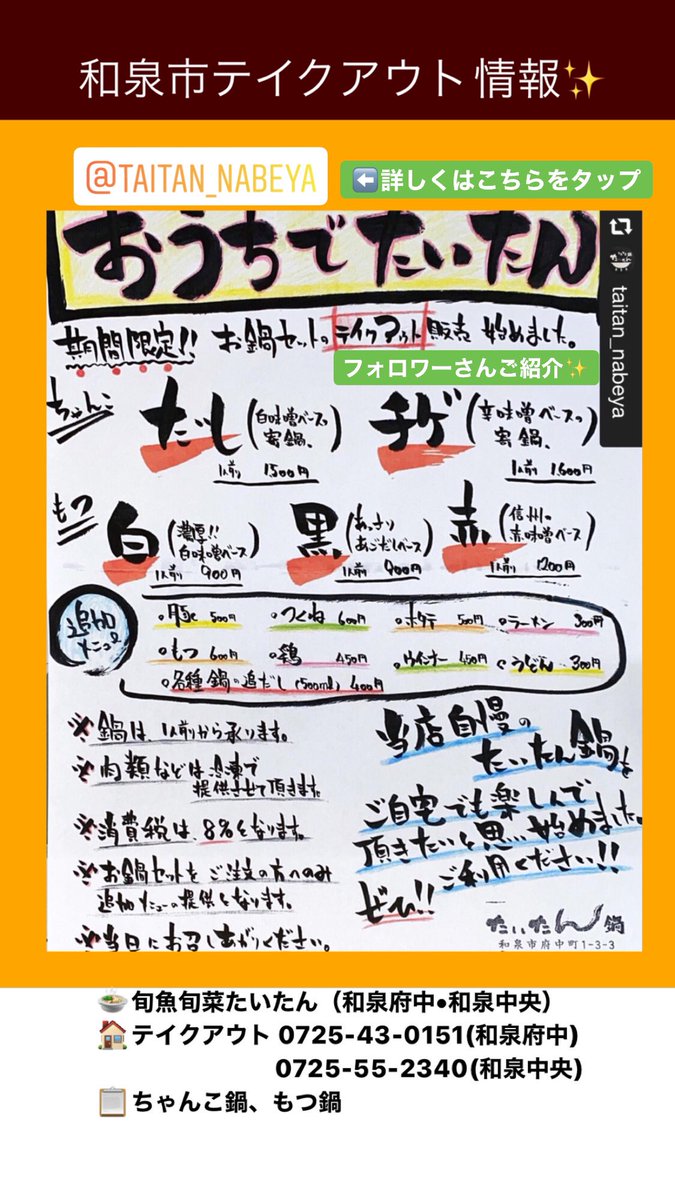 和泉市テイクアウト情報✨
@TAITAN_NABEYA
⬅️詳しくはこちらをタップ
taitan_nabeya
おうちでたいたん
期間限定!! お鍋セットのテイクアウト販売 始めました。
フォロワーさんご紹介✨
ちゃんこ
だし(白味噌ベースの寄鍋、)
1人前 1500円
チゲ(辛味噌ベースの寄鍋、)
1人前 1600円
もつ
白(濃厚!!白味噌ベース)
1人前 900円
黒(あっさりあごだしベース)
1人前 900円
赤(信州の赤味噌ベース)
1人前 1200円
追加メニュー
豚 500円 つくね 600円 ホタテ 500円 ラーメン 300円
もつ 600円 鶏 450円 ウインナー 450円 うどん 300円
各種鍋の追だし(500ml) 400円
※鍋は、1人前から承ります。
※肉類などは冷凍で
提供させて頂きます
※消費税は、8%となります。
※お鍋セットをご注文の方へのみ
追加メニューの提供となります。
※当日にお召しあがりください。
当店自慢の
たいたん鍋を
ご自宅でも楽しんで
頂きたいと思い始めました。
ぜひ!!ご利用ください!!
たいたん鍋
和泉市府中町1-3-3
🍲旬魚旬菜たいたん（和泉府中•和泉中央）
🏠テイクアウト 0725-43-0151(和泉府中)
0725-55-2340(和泉中央)
📋ちゃんこ鍋、もつ鍋